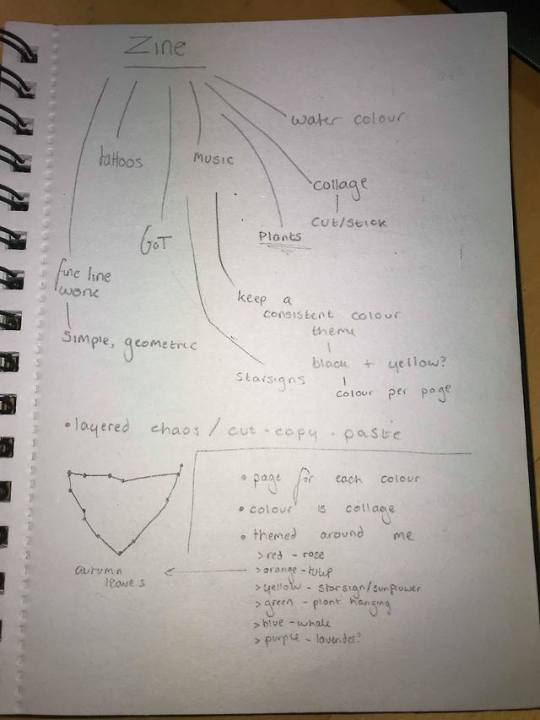 Zine
water colour
tattoos
Music
collage
cut/stick
Plants
GoT
fine line
work
keep a
consistent colour
theme
Simple, geometric
black + yellow?
Starsigns
colour per page
• layered chaos / cut - copy - paste
• page for each colour
• colour is collage
• themed around me
> red - rose
autumn
leaves
> orange - tulip
> yellow - starsign/sunflower
> green - plant hanging
> blue - whale
> purple - lavender?